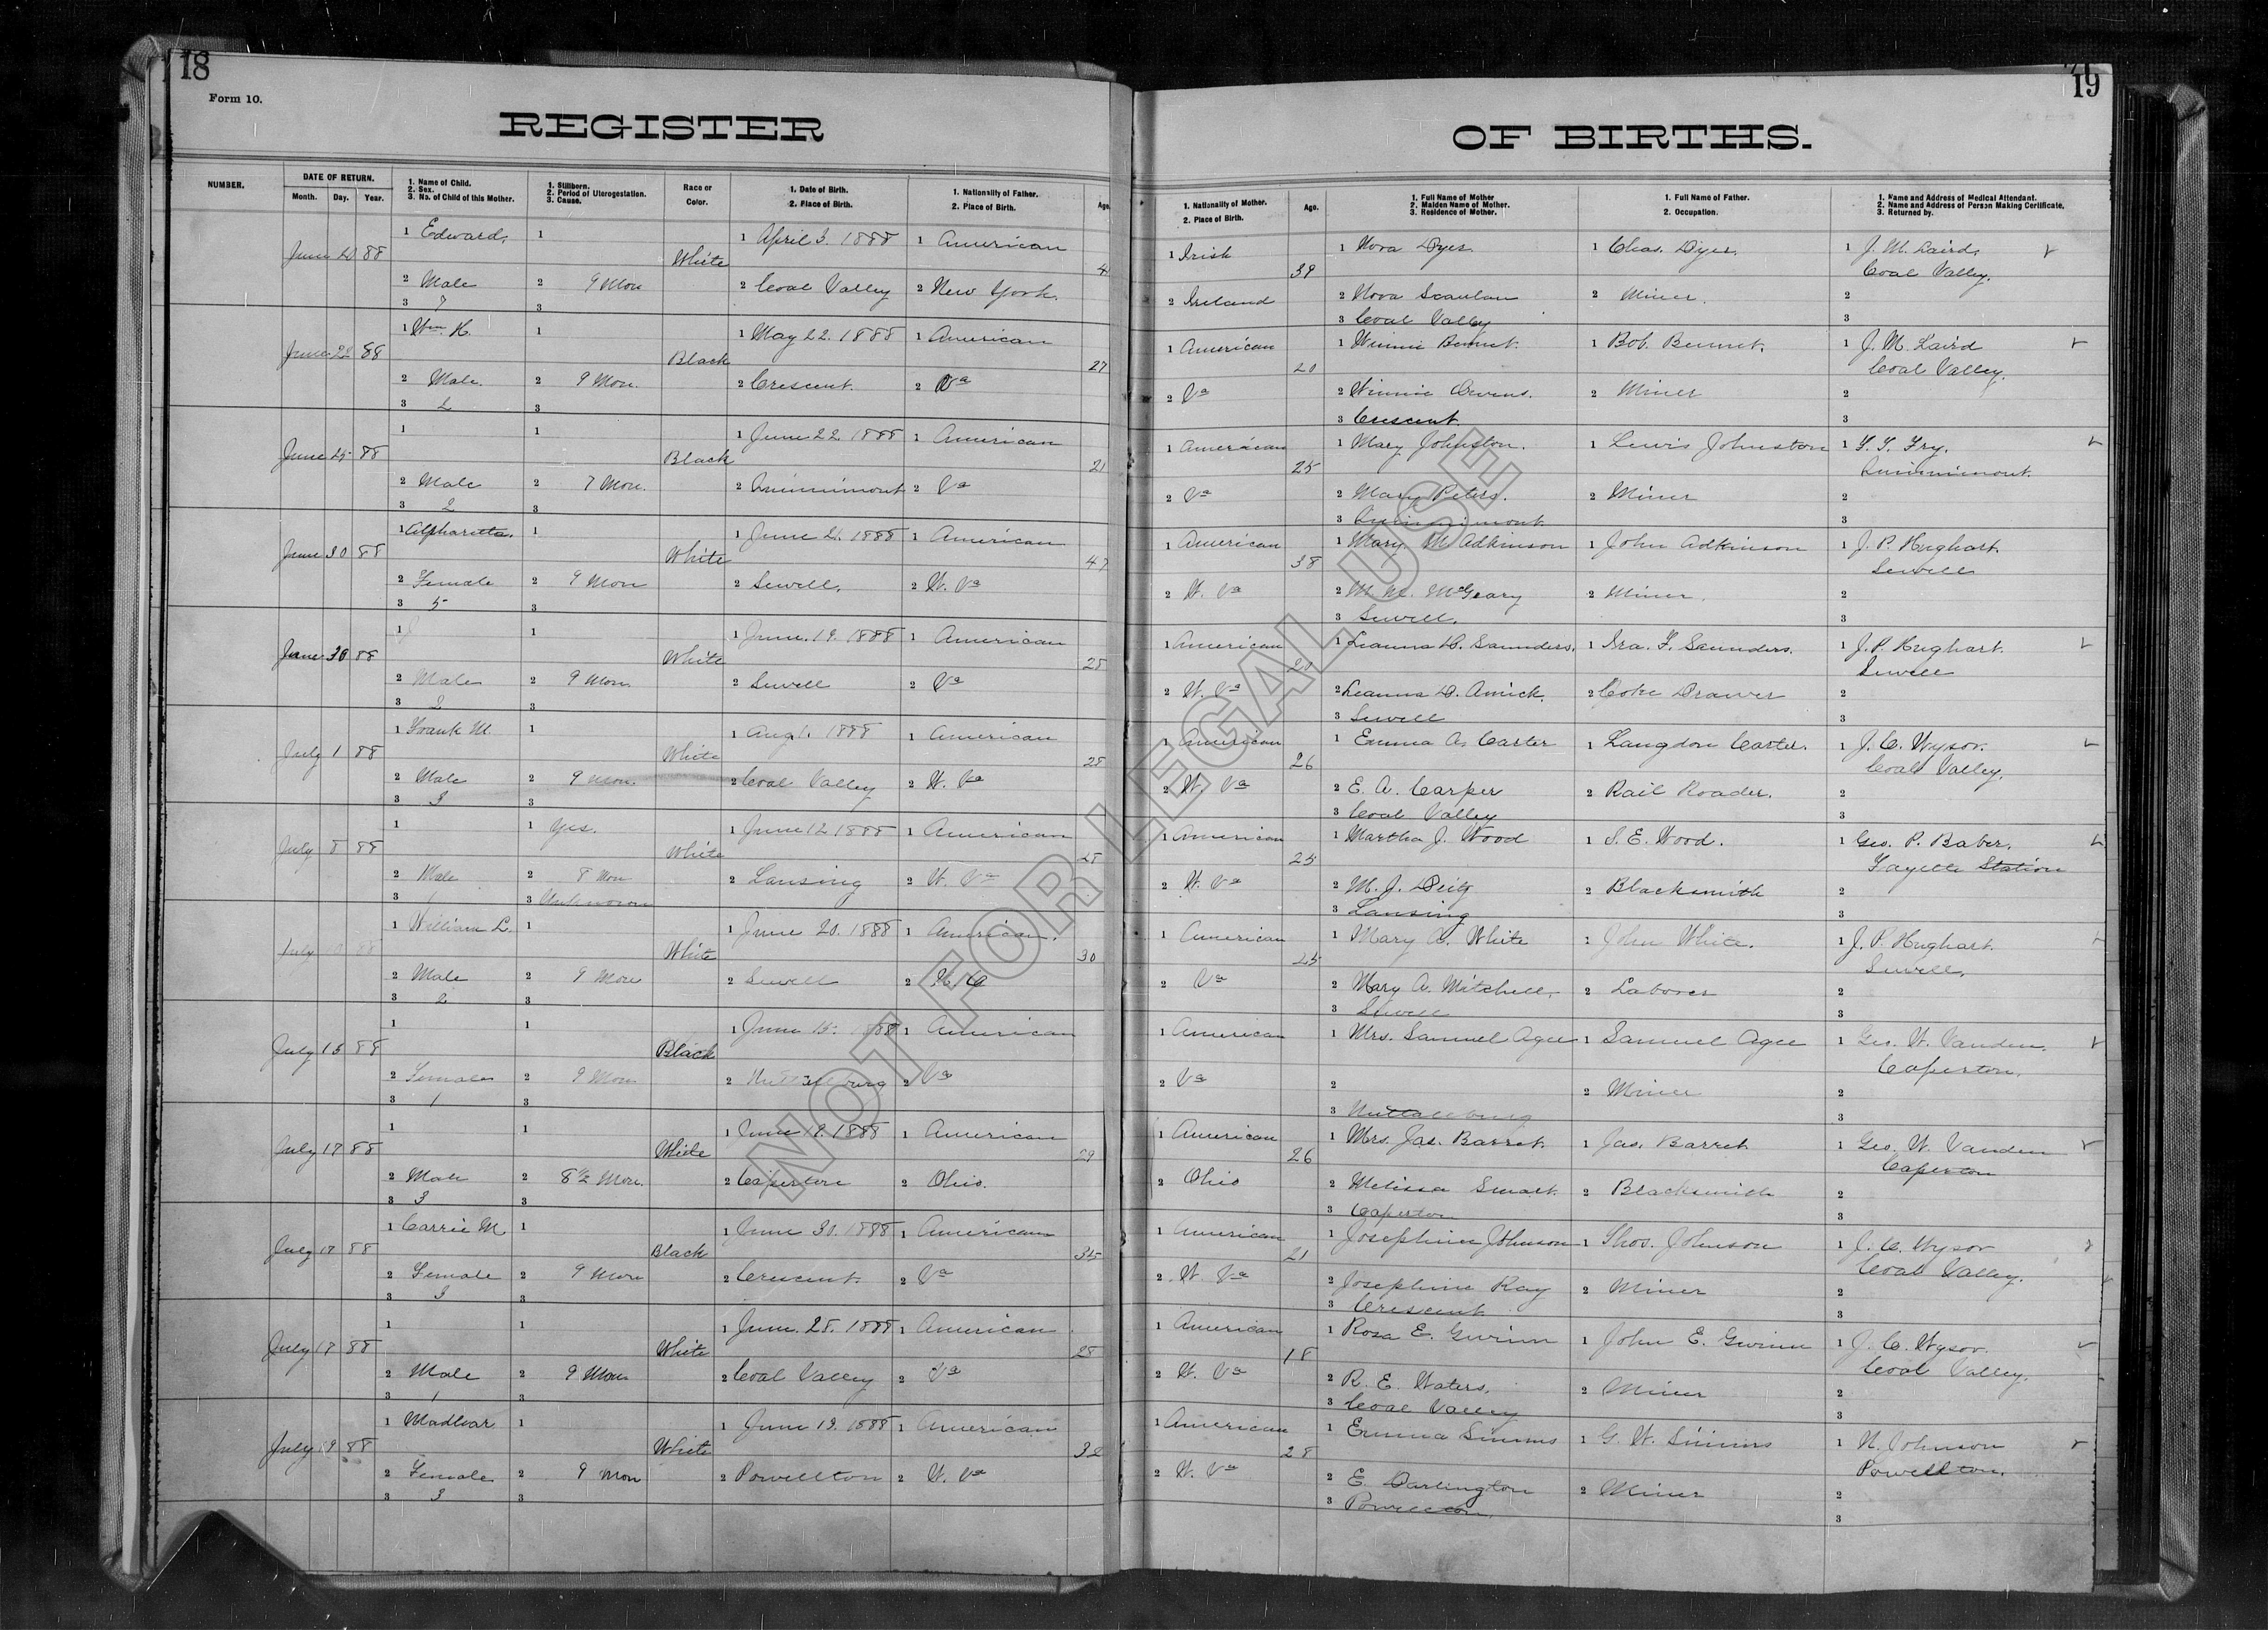 18
Form 10.
REGISTER
NUMBER.
DATE OF RETURN.
Month. Day. Year.
1. Name of Child.
2. Sex.
3. No. of Child of this Mother.
1. Stillborn.
2. Period of Uterogestation.
3. Cause.
Race or
Color.
1. Date of Birth.
2. Place of Birth.
1. Nationality of Father.
2. Place of Birth.
Age.
June 20 88 1 Edward, 1 White 1 April 3. 1888 1 American
2 Male 2 9 Mon 2 Coal Valley 2 New York.
3 7 3
June 22 88 1 Wm H. 1 Black 1 May 22. 1888 1 American 27
2 Male. 2 9 Mon. 2 Crescent. 2 Va
3 2 3
June 25 88 1 1 Black 1 June 22. 1888 1 American 21
2 Male 2 7 Mon. 2 Quinnimont 2 Va
3 2 3
June 30 88 1 Alpharitta. 1 White 1 June 2. 1888 1 American 47
2 Female 2 9 Mon 2 Sewell. 2 W. Va
3 5 3
June 30 88 1 1 White 1 June. 19. 1888 1 American 28
2 Male 2 9 Mon. 2 Sewell 2 Va
3 2 3
July 1 88 1 Frank M. 1 White 1 Aug 1. 1888 1 American 28
2 Male 2 9 Mon. 2 Coal Valley 2 W. Va
3 3 3
July 8 88 1 1 Yes. White 1 June 12 1888 1 American 28
2 Male 2 8 Mon 2 Lansing 2 W. Va
3 1 3 Unknown
July 88 1 William L. 1 White 1 June 20. 1888 1 American. 30
2 Male 2 9 Mon 2 Sewell 2
3 2 3
July 15 88 1 1 Black 1 June 15. 1888 1 American
2 Female 2 9 Mon 2 Nuttallburg 2 Va
3 1 3
July 17 88 1 1 White 1 June 1888 1 American 29
2 Male 2 8 1/2 Mon. 2 Caperton 2 Ohio.
3 3 3
July 17 88 1 Carrie M 1 Black 1 June 30. 1888 1 American 35
2 Female 2 9 Mon 2 Crescent. 2 Va
3 3 3
July 17 88 1 1 White 1 June. 28. 1888 1 American 28
2 Male 2 9 Mon 2 Coal Valley 2 Va
3 1 3
July 19 88 1 1 White 1 June 19. 1888 1 American 32
2 Female 2 9 Mon 2 Powellton 2 W. Va
3 3 3
19
OF BIRTHS.
1. Nationality of Mother.
2. Place of Birth.
Age.
1. Full Name of Mother
2. Maiden Name of Mother.
3. Residence of Mother.
1. Full Name of Father.
2. Occupation.
1. Name and Address of Medical Attendant.
2. Name and Address of Person Making Certificate,
3. Returned by.
1 Irish 39 1 Nora Dyer 1 Chas. Dyer. 1 J. M. Laird,
Coal Valley.
2 Ireland 2 Nora Scanlan 2 Miner. 2
3 Coal Valley 3
1 American 20 1 Winnie Bennet. 1 Bob. Bennet. 1 J. M. Laird
Coal Valley.
2 Va 2 Winnie Owens. 2 Miner 2
3 Crescent. 3
1 American 25 1 Mary Johnston. 1 Lewis Johnston 1 Fry.
Quinnimont.
2 Va 2 Mary Peters. 2 Miner 2
3 Quinnimont 3
1 American 38 1 Mary. M Adkinson 1 John Adkinson 1 J. P. Hughart.
Sewell
2 W. Va 2 M. M. McGeary 2 Miner. 2
3 Sewell. 3
1 American 20 1 Leanna D. Saunders. 1 Ira. F. Saunders. 1 J. P. Hughart.
Sewell
2 W. Va 2 Leanna D. Amick. 2 Coke Drawer 2
3 Sewell 3
1 American 26 1 Emma A. Carter 1 Langdon Carter. 1 J. C. Wysor.
Coal Valley.
2 W. Va 2 E. A. Carper 2 Rail Roader. 2
3 Coal Valley 3
1 American 25 1 Martha J. Wood 1 S. E. Wood. 1 Geo. P. Baber.
Fayette Station
2 W. Va 2 M. J. Deitz 2 Blacksmith 2
3 Lansing 3
1 American 25 1 Mary A. White 1 John White. 1 J. P. Hughart.
Sewell.
2 Va 2 Mary A. Mitchell. 2 Laborer 2
3 Sewell 3
1 American 1 Mrs. Samuel Agee 1 Samuel Agee 1 Geo. W. Vanden.
Caperton.
2 Va 2 2 Miner 2
3 Nuttallburg 3
1 American 26 1 Mrs. Jas. Barret. 1 Jas. Barret 1 Geo. W. Vanden
Caperton
2 Ohio 2 Melissa Smart. 2 Blacksmith 2
3 Caperton 3
1 American 21 1 Josephine Johnson 1 Thos. Johnson 1 J. C. Wysor
Coal Valley.
2 W. Va 2 Josephine Ray 2 Miner 2
3 Crescent 3
1 American 18 1 Rosa E. Gwinn 1 John E. Gwinn 1 J. C. Wysor.
Coal Valley.
2 W. Va 2 R. E. Waters. 2 Miner 2
3 Coal Valley 3
1 American 28 1 Emma Simms 1 G. W. Simms 1 N. Johnson
Powellton.
2 W. Va 2 E. Darlington 2 Miner 2
3 Powellton. 3
NOT FOR LEGAL USE